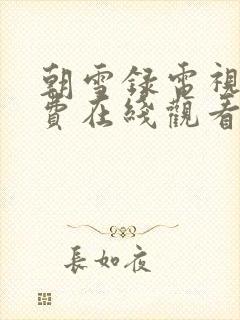 朝雪録電視
費在綫觀看
長如夜